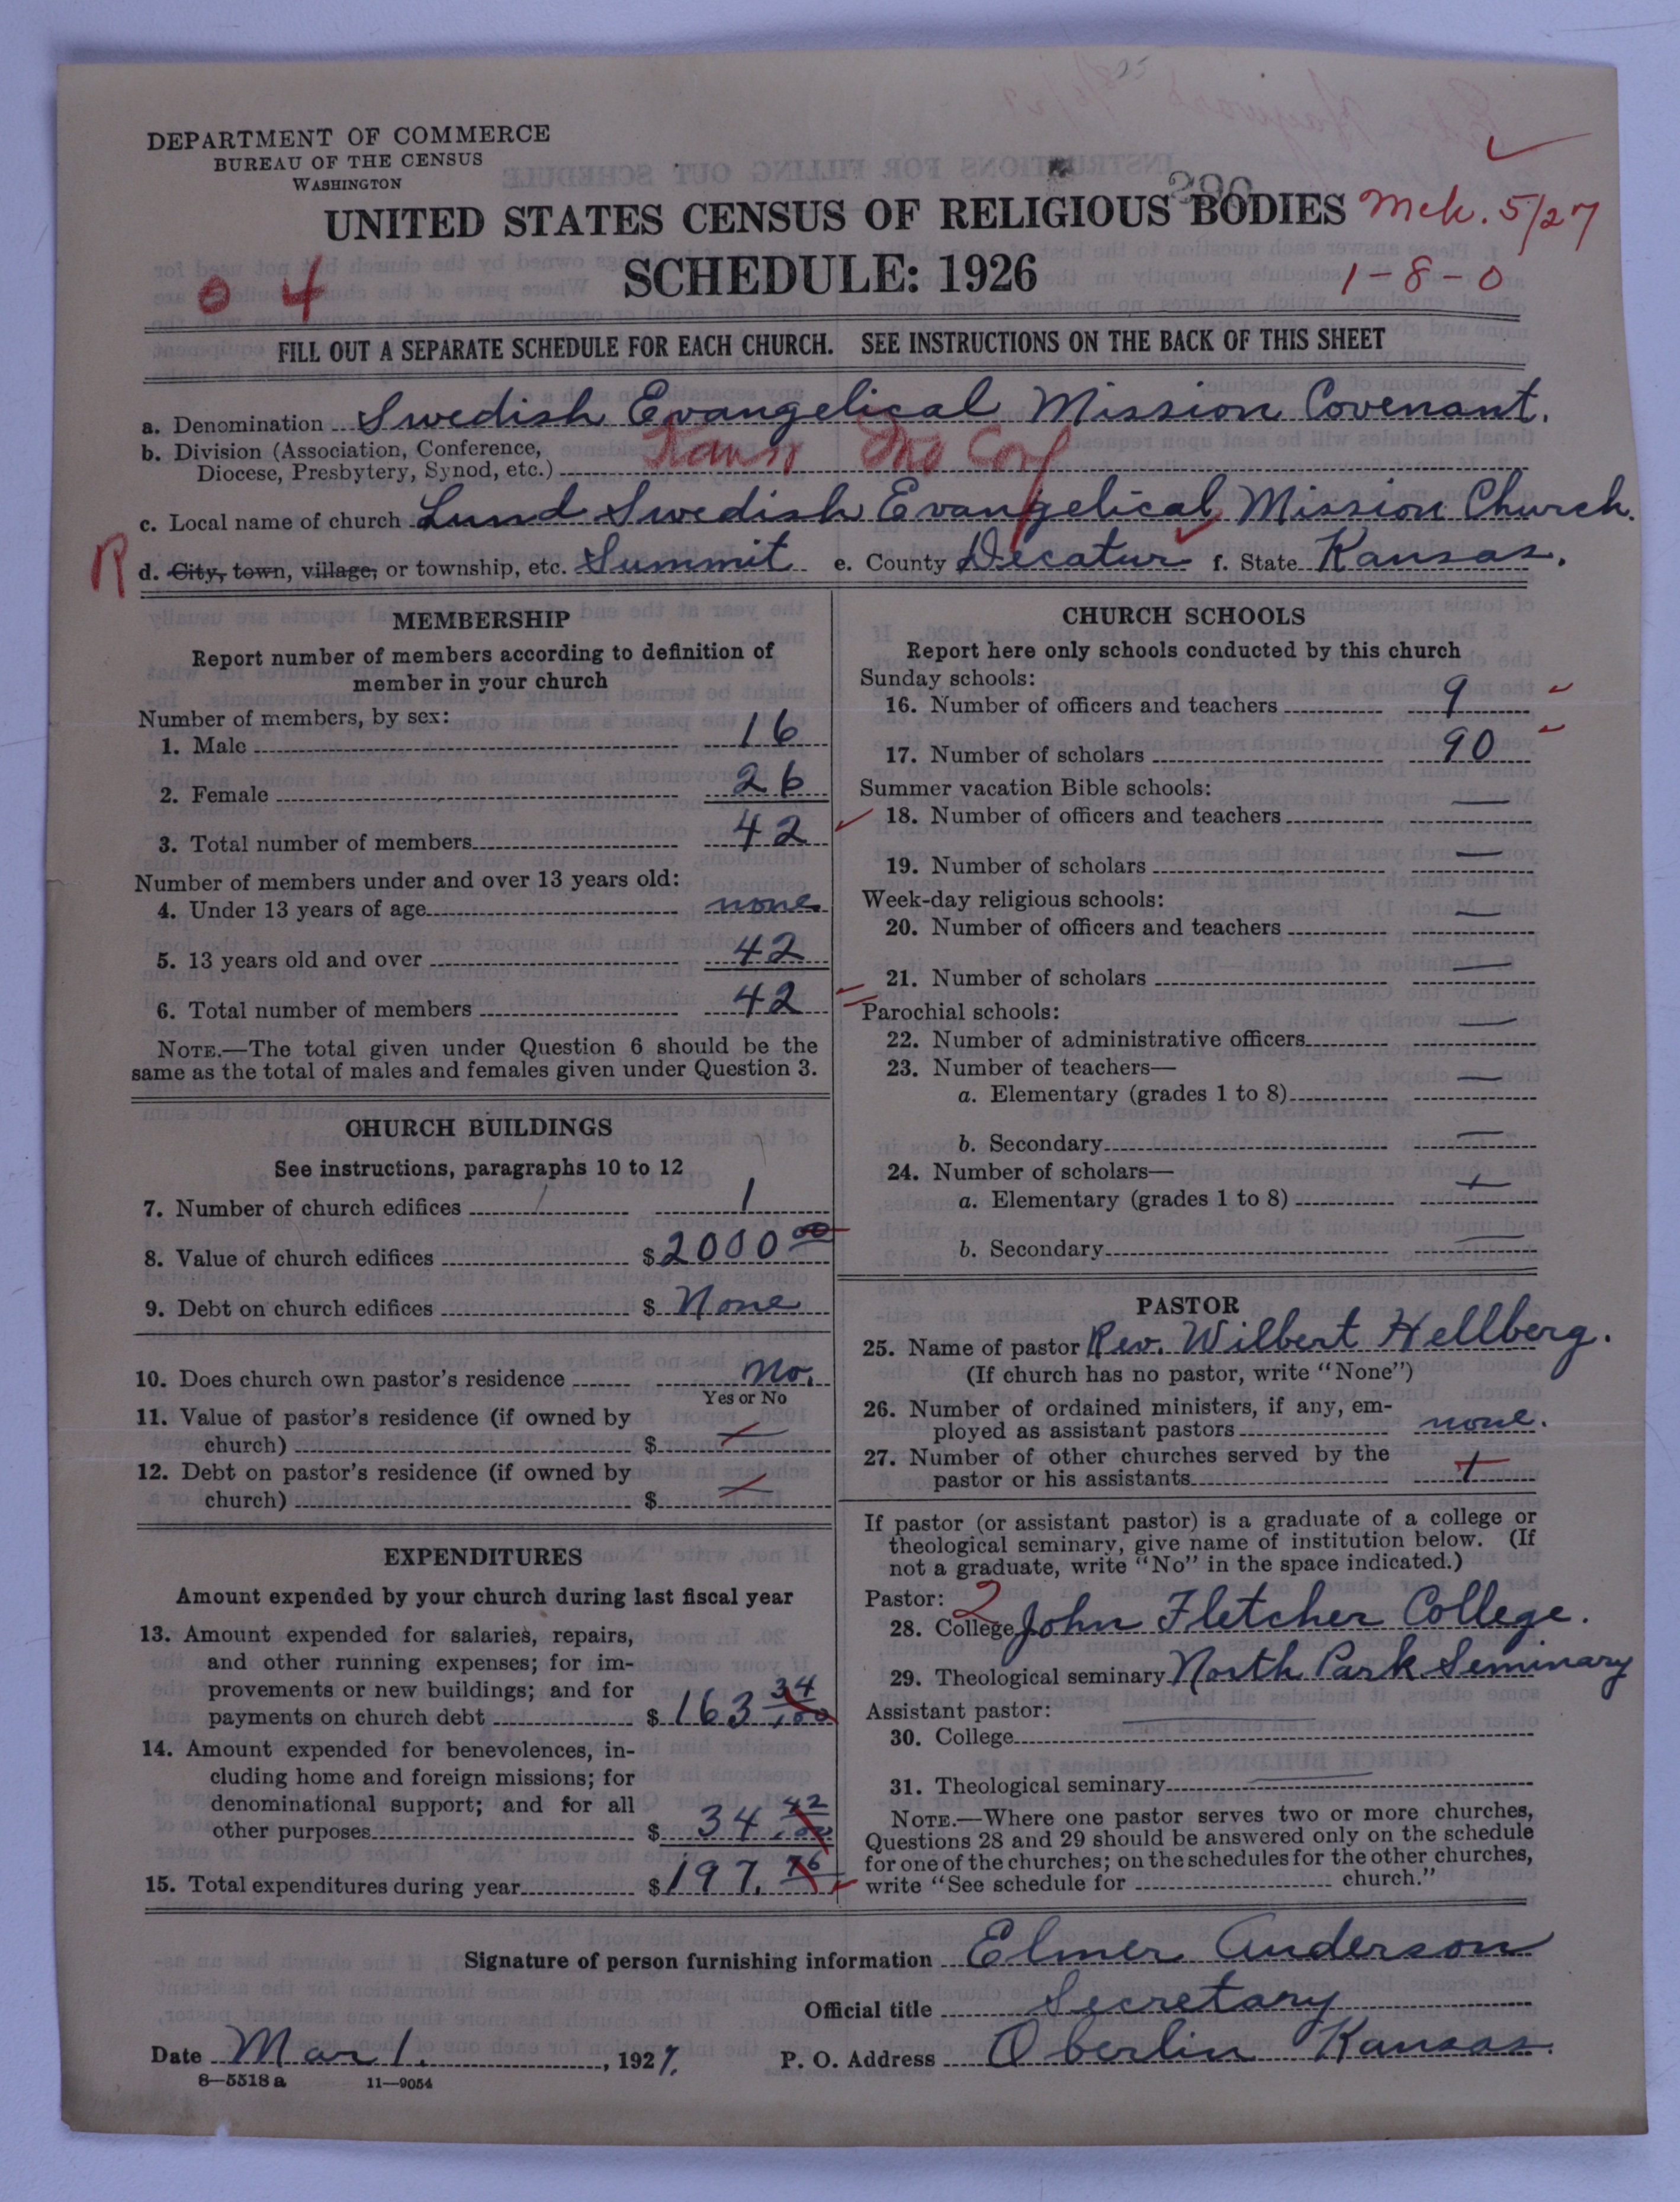 DEPARTMENT OF COMMERCE
BUREAU OF THE CENSUS
WASHINGTON
296
UNITED STATES CENSUS OF RELIGIOUS BODIES Mch. 5/27
SCHEDULE: 1926
1-8-0
0 4
FILL OUT A SEPARATE SCHEDULE FOR EACH CHURCH. SEE INSTRUCTIONS ON THE BACK OF THIS SHEET
a. Denomination Swedish Evangelical Mission Covenant.
b. Division (Association, Conference,
Diocese, Presbytery, Synod, etc.)
c. Local name of church Lund Swedish Evangelical Mission Church.
R d. City, town, village, or township, etc. Summit e. County Decatur f. State Kansas.
MEMBERSHIP
Report number of members according to definition of
member in your church
Number of members, by sex:
1. Male 16
2. Female 26
3. Total number of members 42
Number of members under and over 13 years old:
4. Under 13 years of age none
5. 13 years old and over 42
6. Total number of members 42
NOTE.—The total given under Question 6 should be the
same as the total of males and females given under Question 3.
CHURCH BUILDINGS
See instructions, paragraphs 10 to 12
7. Number of church edifices 1
8. Value of church edifices $2000 00
9. Debt on church edifices $ None
10. Does church own pastor's residence No.
Yes or No
11. Value of pastor's residence (if owned by
church) $ —
12. Debt on pastor's residence (if owned by
church) $ —
EXPENDITURES
Amount expended by your church during last fiscal year
13. Amount expended for salaries, repairs,
and other running expenses; for im-
provements or new buildings; and for
payments on church debt $163 34/100
14. Amount expended for benevolences, in-
cluding home and foreign missions; for
denominational support; and for all
other purposes $ 34 42/100
15. Total expenditures during year $197. 76
CHURCH SCHOOLS
Report here only schools conducted by this church
Sunday schools:
16. Number of officers and teachers 9
17. Number of scholars 90
Summer vacation Bible schools:
18. Number of officers and teachers —
19. Number of scholars —
Week-day religious schools:
20. Number of officers and teachers —
21. Number of scholars —
Parochial schools:
22. Number of administrative officers —
23. Number of teachers—
a. Elementary (grades 1 to 8) —
b. Secondary —
24. Number of scholars—
a. Elementary (grades 1 to 8) —
b. Secondary —
PASTOR
25. Name of pastor Rev. Wilbert Hellberg.
(If church has no pastor, write "None")
26. Number of ordained ministers, if any, em-
ployed as assistant pastors none.
27. Number of other churches served by the
pastor or his assistants —
If pastor (or assistant pastor) is a graduate of a college or
theological seminary, give name of institution below. (If
not a graduate, write "No" in the space indicated.)
Pastor: 2
28. College John Fletcher College.
29. Theological seminary North Park Seminary
Assistant pastor:
30. College —
31. Theological seminary —
NOTE.—Where one pastor serves two or more churches,
Questions 28 and 29 should be answered only on the schedule
for one of the churches; on the schedules for the other churches,
write "See schedule for church."
Signature of person furnishing information Elmer Anderson
Official title Secretary
Date Mar 1. , 1927. P. O. Address Oberlin Kansas.
8—5518a 11—9054